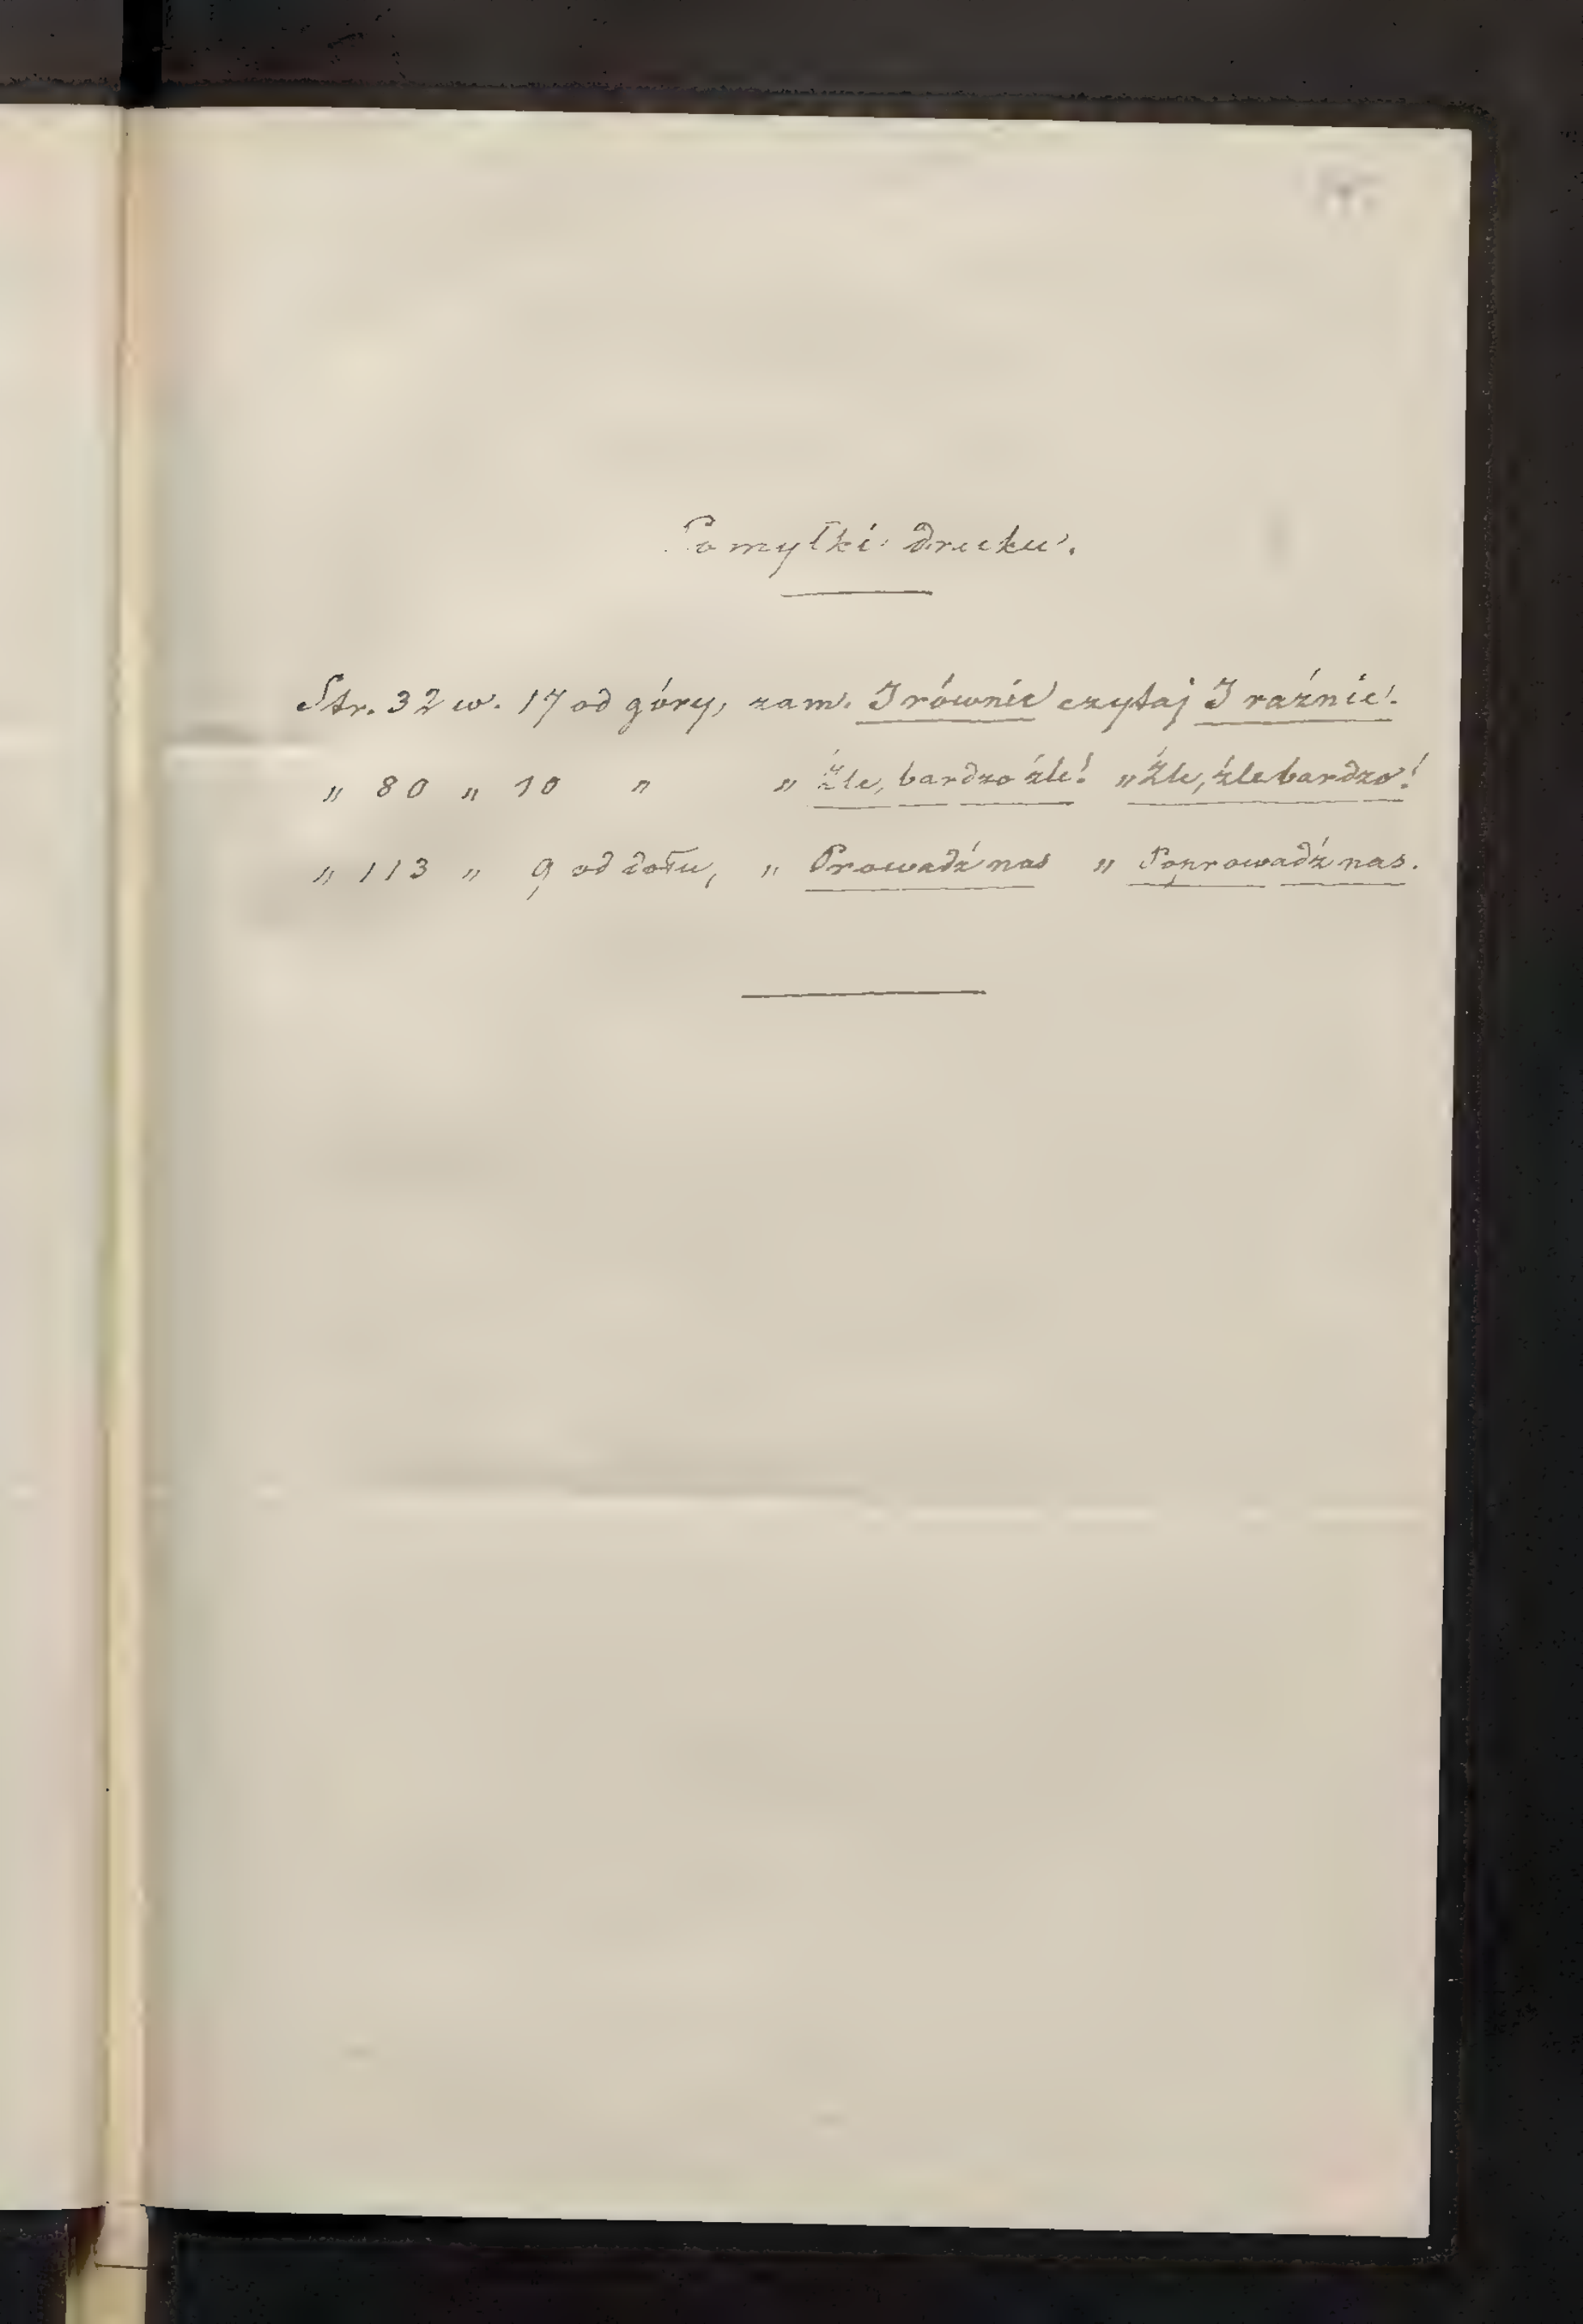 Pomyłki druku.
Str. 32 w. 17 od góry, zam. I równie czytaj I raźnie.
„ 80 „ 10 „ „ Źle, bardzo źle! „ Źle, źle bardzo!
„ 113 „ 9 od dołu, „ Prowadź nas „ Poprowadź nas.